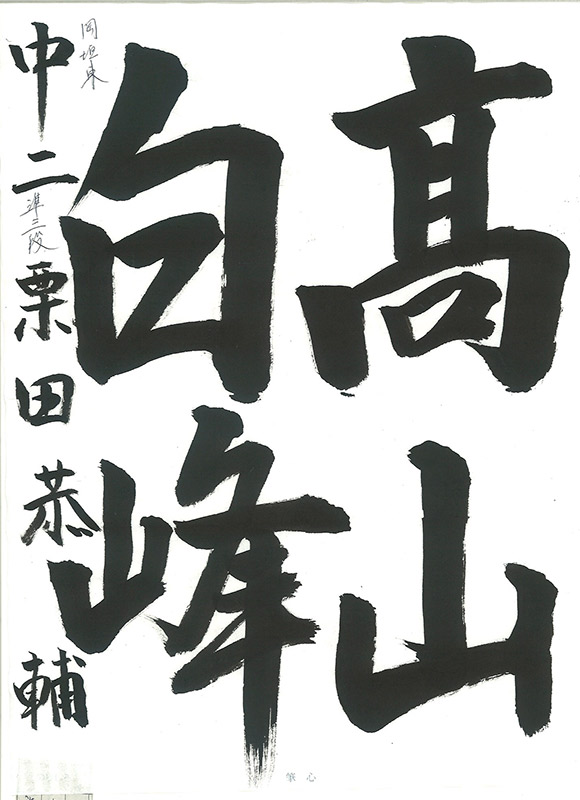 髙山
白峰
岡垣東
中二 準三段 栗田恭輔
心筆